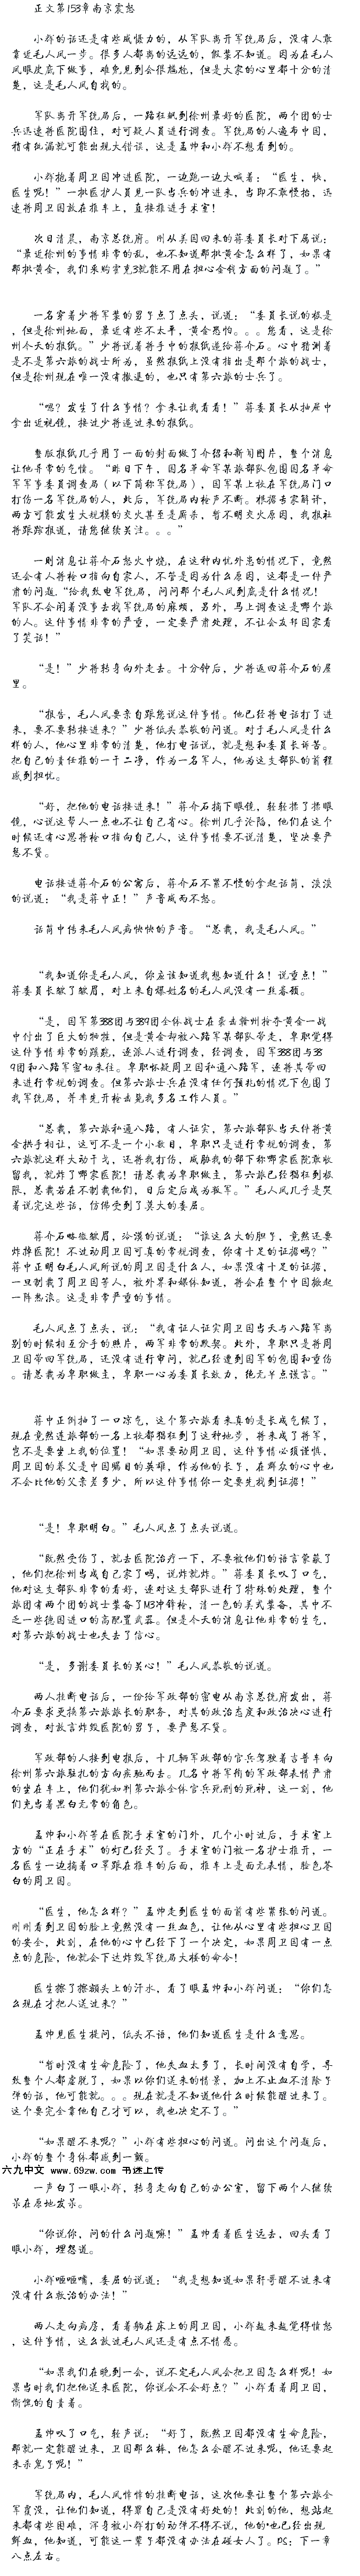 正文第153章南京震怒
小群的话还是有些威慑力的，从军队离开军统局后，没有人敢
靠近毛人凤一步。很多人都离的远远的，假装不知道。因为在毛人
凤眼皮底下做事，难免见到会很尴尬，但是大家的心里都十分的清
楚，这是毛人凤自找的。
军队离开军统局后，一路狂飙到徐州最好的医院，两个团的士
兵迅速将医院围住，对可疑人员进行调查。军统局的人遍布中国，
稍有纰漏就可能出现大错误，这是孟帅和小群不想看到的。
小群抱着周卫国冲进医院，一边跑一边大喊着：“医生，快，
医生呢！”一排医护人员见一队当兵的冲进来，当即不敢怠抬，迅
速将周卫国放在推车上，直接推进手术室！
次日清晨，南京总统府。刚从美国回来的蒋委員长对下属说：
“最近徐州的事情非常的乱，也不知道那批黄金怎么样了，如果有
那批黄金，我们采购雷克3就能不用在担心金钱方面的问题了。”
一名穿着少将军装的男子点了点头，说道：“委員长说的极是
，但是徐州地面，最近有些不太平，黄金恐怕。。。您看，这是徐
州今天的报纸。”少将说着将手中的报纸递给蒋介石。心中猜测着
是不是第六旅的战士所为，虽然报纸上没有指出是那个旅的战士，
但是徐州现在唯一没有撤退的，也只有第六旅的士兵了。
“嗯？发生了什么事情？拿来让我看看！”蒋委員长从抽屉中
拿出近视镜，接过少将递过来的报纸。
整版报纸几乎用了一面的封面做了介绍和新闻图片，整个消息
让他异常的气愤。“昨日下午，国名革命军某旅部队包围国名革命
军军事委員调查局（以下简称军统局），因军某上校在军统局门口
打伤一名军统局的人，此后，军统局内枪声不断。根据专家解译，
两方可能发生大规模的交火甚至是厮杀，暂不明交火原因，我报社
将跟踪报道，请您继续关注。。。”
一则消息让蒋介石怒火中烧，在这种内忧外患的情况下，竟然
还会有人将枪口指向自家人，不管是因为什么原因，这都是一件严
肃的问题。“给我致电军统局，问问那个毛人凤到底是什么情况！
军队不会闲着没事去找军统局的麻烦，另外，马上调查这是哪个旅
的人。这件事情非常的严重，一定要严肃处理，不让会友邦国家看
了笑话！”
“是！”少将转身向外走去。十分钟后，少将返回蒋介石的屋
里。
“报告，毛人凤要亲自跟您说这件事情。他已经将电话打了进
来，要不要转接进来？”少将低头恭敬的问道。对于毛人凤是什么
样的人，他心里非常的清楚，他打电话说，就是想和委員长诉苦。
把自己的责任推的一干二净，作为一名军人，他为这支部队的前程
感到担忧。
“好，把他的电话接进来！”蒋介石摘下眼镜，轻轻揉了揉眼
镜，心说这帮人一点也不让自己省心。徐州几乎沦陷，他们在这个
时候还有心思将枪口指向自己人，这件事情要不说清楚，坚决要严
惩不贷。
电话接进蒋介石的公寓后，蒋介石不紧不慢的拿起话筒，淡淡
的说道：“我是蒋中正！”声音威而不怒。
话筒中传来毛人凤病怏怏的声音。“总裁，我是毛人凤。”
“我知道你是毛人凤，你应该知道我想知道什么！说重点！”
蒋委員长皱了皱眉，对上来自爆姓名的毛人凤没有一丝眷顾。
“是，国军第388团与389团全体战士在袭击赣州抢夺黄金一战
中付出了巨大的牺牲，但是黄金却被八路军某部队带走，卑职觉得
这件事情非常的蹊跷，遂派人进行调查，经调查，国军388团与38
9团和八路军密切来往。卑职怀疑周卫国私通八路军，遂将其带回
来进行常规的调查。但第六旅士兵在没有任何预兆的情况下包围了
我军统局，并率先开枪击毙我多名工作人员。”
“总裁，第六旅私通八路，有人证实，第六旅部队当天件将黄
金拱手相让，这可不是一个小数目，卑职只是进行常规的调查，第
六旅就这样大动干戈，还将我打伤，威胁我的部下称哪家医院敢收
留我，就炸了哪家医院！请总裁为卑职做主，第六旅已经猖狂到极
限，总裁若在不制裁他们，日后定后成为叛军。”毛人凤几乎是哭
着说完这些话，仿佛受到了莫大的委屈。
蒋介石略微皱眉，冷漠的说道：“谁这么大的胆子，竟然还要
炸掉医院！不过动周卫国可真的常规调查，你有十足的证据吗？”
蒋中正明白毛人凤所说的周卫国是什么人，如果没有十足的证据，
一旦制裁了周卫国等人，被外界和媒体知道，将会在整个中国掀起
一阵热浪。这是非常严重的事情。
毛人凤点了点头，说：“我有证人证实周卫国当天与八路军离
别的时候相互分手的照片，两军非常的默契。此外，卑职只是将周
卫国带回军统局，还没有进行审问，就已经遭到国军的包围和重伤
。请总裁为卑职做主，卑职一心为委員长效力，绝无半点谎言。”
蒋中正倒抽了一口凉气，这个第六旅看来真的是长成气候了，
现在竟然连旅部的一名上校都猖狂到了这种地步，将来成了将军，
岂不是要坐上我的位置！“如果要动周卫国，这件事情必须谨慎，
周卫国的养父是中国瞩目的英雄，作为他的长子，在群众的心中也
不会比他的父亲差多少，所以这件事情你一定要先找到证据！”
“是！卑职明白。”毛人凤点了点头说道。
“既然受伤了，就去医院治疗一下，不要被他们的语言蒙蔽了
，他们把徐州当成自己家了吗，说炸就炸。”蒋委員长叹了口气，
他对这支部队非常的看好，遂对这支部队进行了特殊的处理，整个
旅团有两个团的战士装备了M3冲锋枪，清一色的美式装备，其中不
乏一些德国进口的高配置武器。但是今天的消息让他非常的生气，
对第六旅的战士也失去了信心。
“是，多谢委員长的关心！”毛人凤恭敬的说道。
两人挂断电话后，一份给军政部的密电从南京总统府发出，蒋
介石要求更换第六旅旅长的职务，对其的政治态度和政治决心进行
调查，对敢言炸毁医院的男子，要严惩不贷。
军政部的人接到电报后，十几辆军政部的官兵驾驶着吉普车向
徐州第六旅驻扎的方向疾驰而去。几名中将军衔的军政部表情严肃
的坐在车上，他们犹如判第六旅全体官兵死刑的死神，这一刻，他
们充当着黑白无常的角色。
孟帅和小群等在医院手术室的门外，几个小时过后，手术室上
方的“正在手术”的灯已经灭了。手术室的门被一名护士推开，一
名医生一边摘着口罩跟在推车的后面，推车上是面无表情，脸色苍
白的周卫国。
“医生，他怎么样？”孟帅走到医生的面前有些紧张的问道。
刚刚看到卫国的脸上竟然没有一丝血色，让他从心里有些担心卫国
的安全，此刻，在他的心中已经下了一个决定，如果周卫国有一点
点的危险，他就会下达炸毁军统局大楼的命令！
医生擦了擦额头上的汗水，看了眼孟帅和小群问道：“你们怎
么现在才把人送过来？”
孟帅见医生提问，低头不语，他们知道医生是什么意思。
“暂时没有生命危险了，他失血太多了，长时间没有自学，导
致整个人都虚脱了，如果以你们送来的情景，加上不止血不清除子
弹的话，他可能就。。。现在就是不知道他什么时候能醒过来了。
这个要完全靠他自己才可以，我也决定不了。”
“如果醒不来呢？”小群有些担心的问道。问出这个问题后，
小群的整个身体都感到一颤。
六九中文 www.69zw.com 书迷上传
一声白了一眼小群，转身走向自己的办公室，留下两个人继续
呆在原地发呆。
“你说你，问的什么问题嘛！”孟帅看着医生远去，回头看了
眼小群，埋怨道。
小群咂咂嘴，委屈的说道：“我是想知道如果轩哥醒不过来有
没有什么救治的办法！”
两人走向病房，看着躺在床上的周卫国，小群越来越觉得愤怒
，这件事情，这么放过毛人凤还是有点不情愿。
“如果我们在晚到一会，说不定毛人凤会把卫国怎么样呢！如
果当时我们把他送来医院，你说会不会好点？”小群看着周卫国，
惭愧的自责着。
孟帅叹了口气，轻声说：“好了，既然卫国都没有生命危险，
那就一定能醒过来，卫国那么棒，他怎么会醒不过来呢，他还要起
来杀鬼子呢！”
军统局内，毛人凤悻悻的挂断电话，这次他要让整个第六旅全
军震没，让他们知道，得罪自己是没有好处的！此刻的他，想站起
来都有些困难，浑身被小群打的动弹不得不说，他的*也已经出现
鲜血，他知道，可能这一辈子都没有办法在碰女人了。PS：下一章
八点左右。